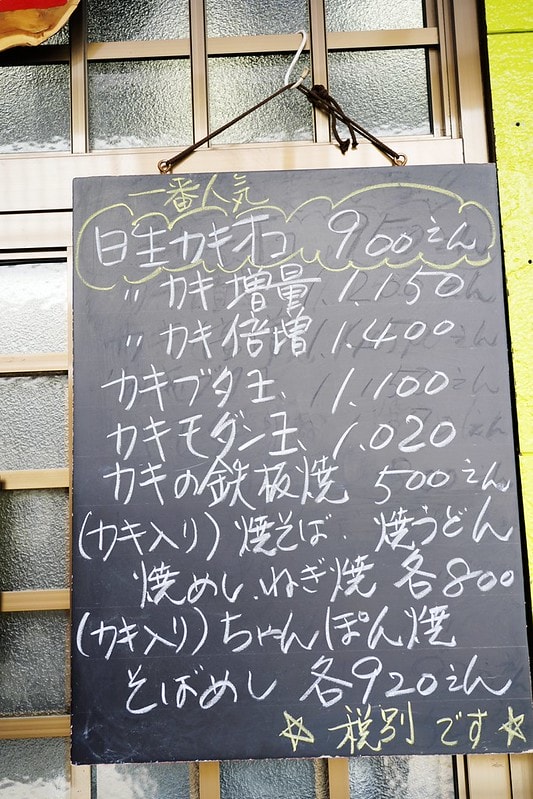 一番人気
日生カキオコ 900えん
〃 カキ増量 1.150
〃 カキ倍増 1.400
カキブタ玉、 1.100
カキモダン玉、 1.020
カキの鉄板焼 500えん
(カキ入り)焼そば、焼うどん
焼めし、ねぎ焼 各800
(カキ入り)ちゃんぽん焼
そばめし 各920えん
☆税別です☆